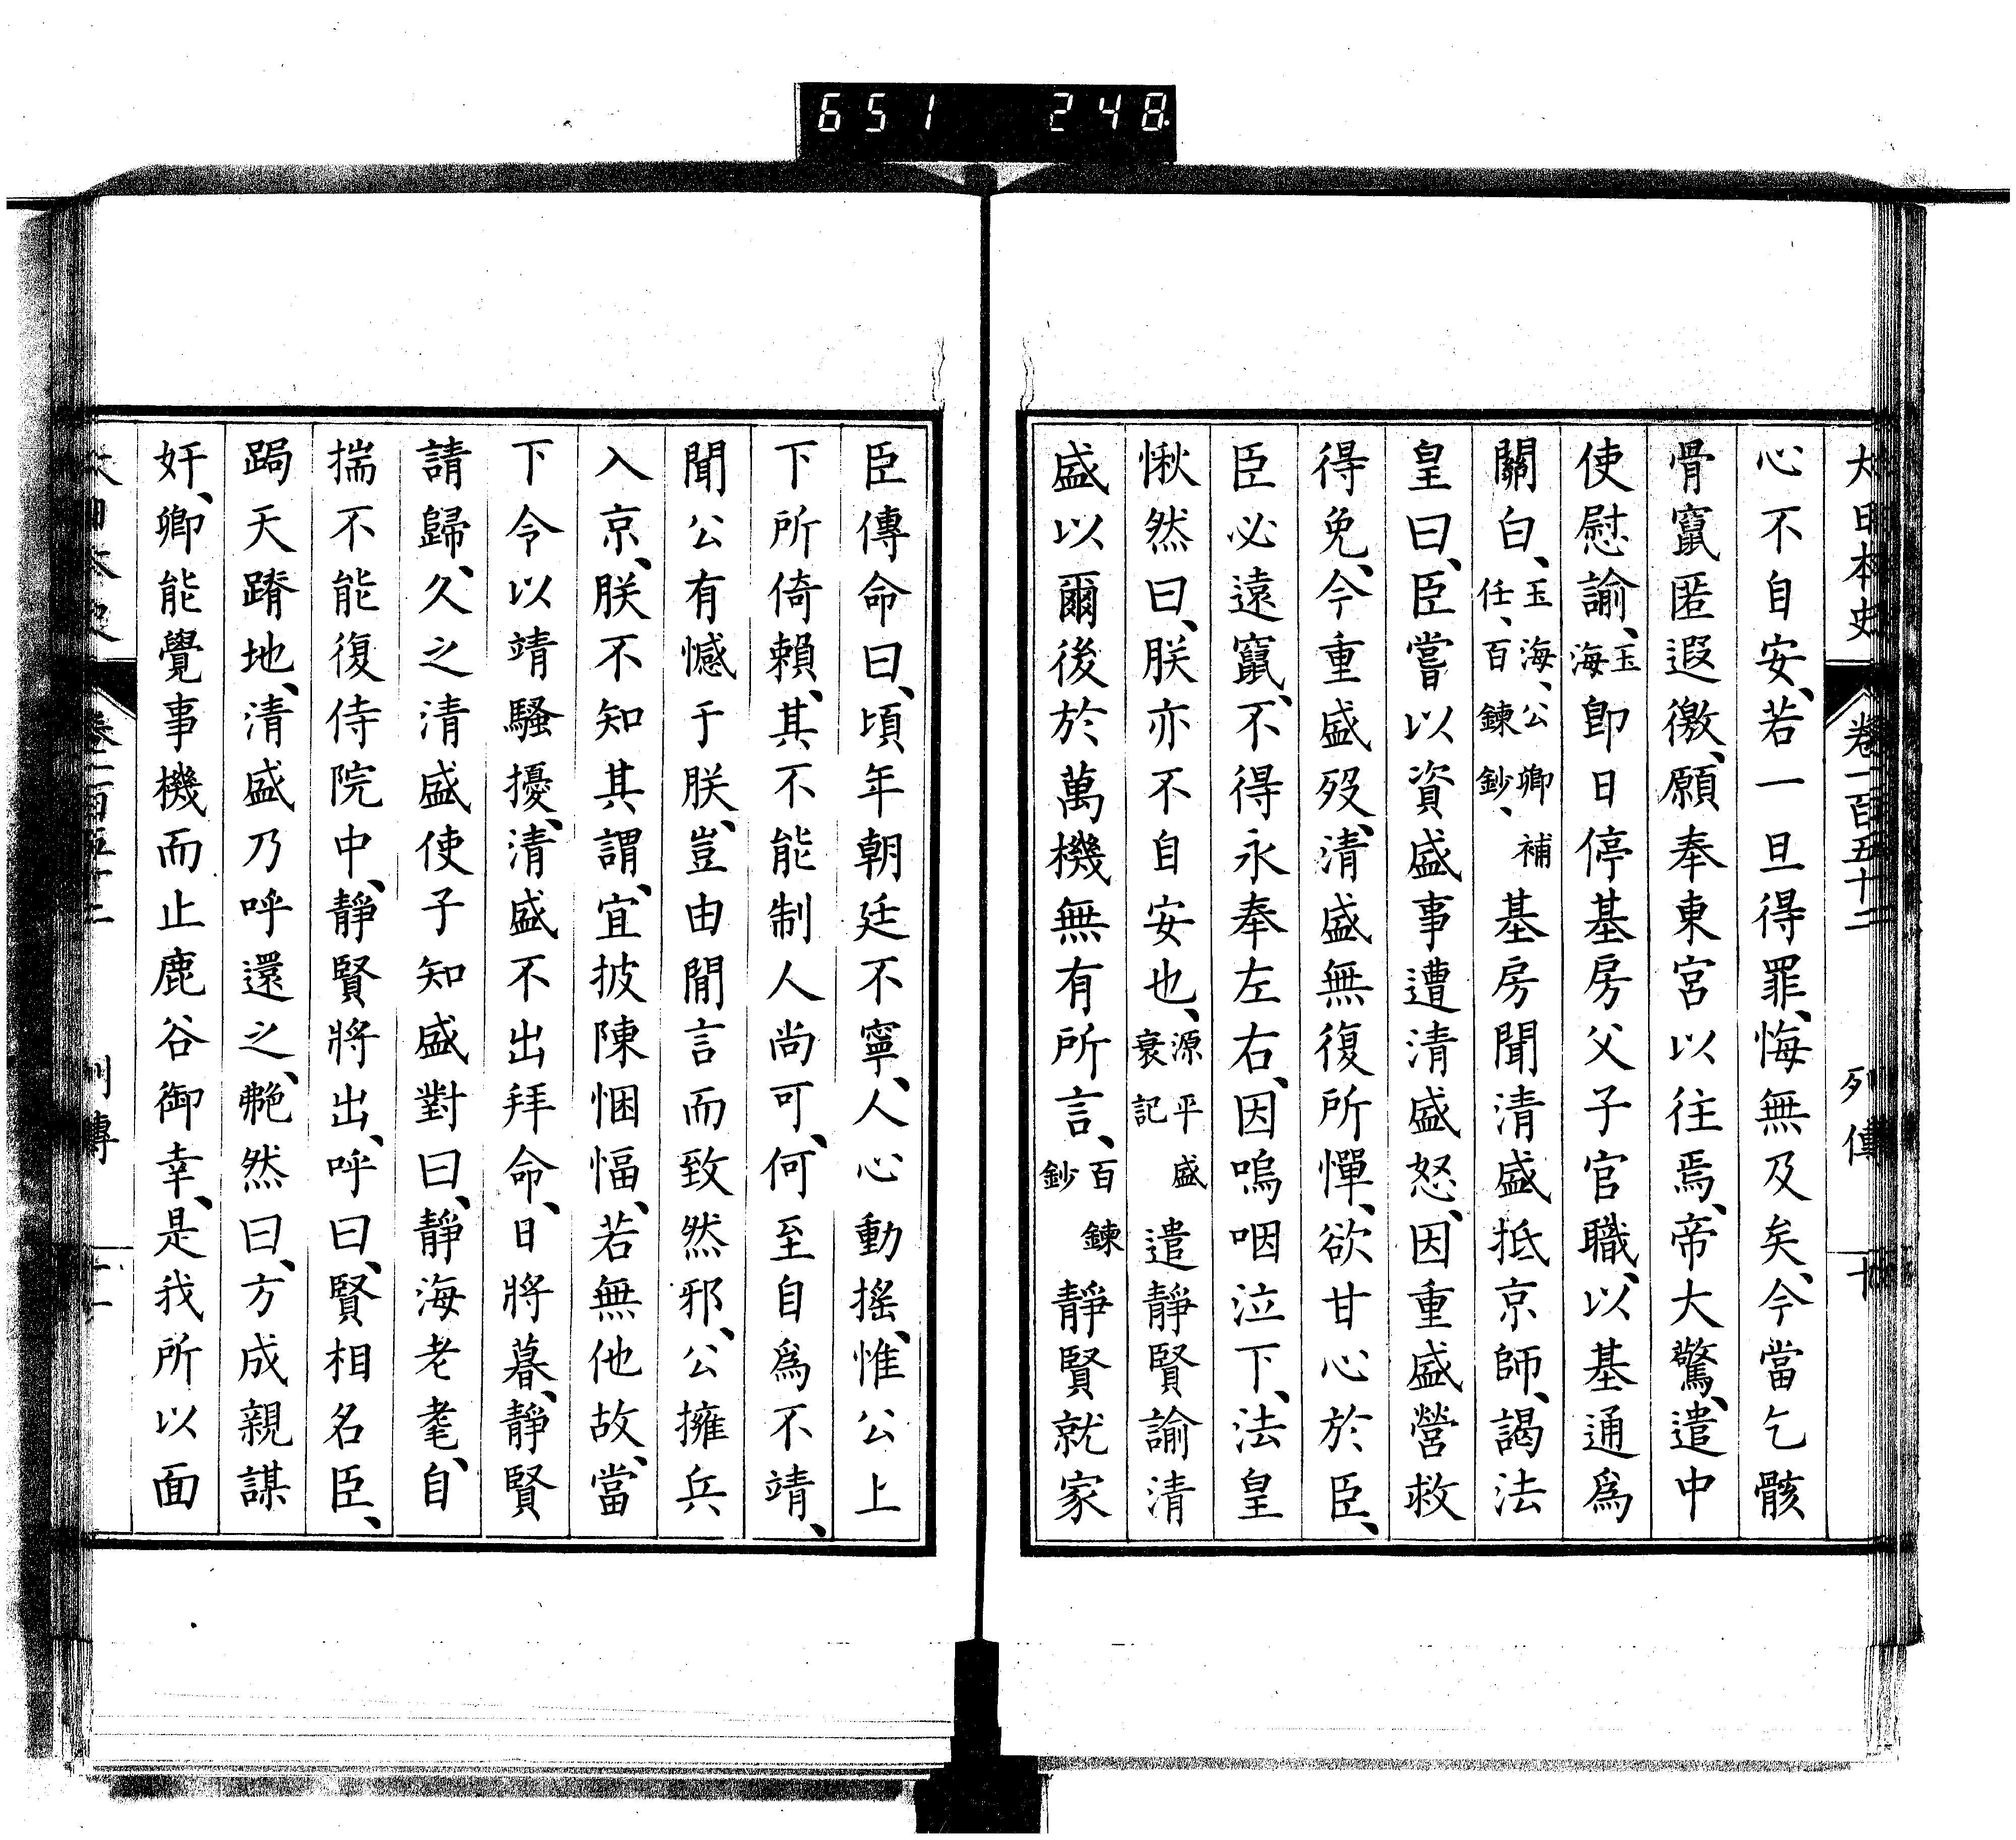 651 248
大日本史 卷一百五十二 列傳 十
心不自安、若一旦得罪、悔無及矣、今當乞骸
骨竄匿遐徼、願奉東宮以往焉、帝大驚、遣中
使慰諭、玉海 卽日停基房父子官職、以基通爲
關白、玉海、公卿補任、百鍊鈔、 基房聞清盛抵京師、謁法
皇曰、臣嘗以資盛事遭清盛怒、因重盛營救
得免、今重盛歿、清盛無復所憚、欲甘心於臣、
臣必遠竄、不得永奉左右、因嗚咽泣下、法皇
愀然曰、朕亦不自安也、源平盛衰記 遣靜賢諭清
盛以爾後於萬機無有所言、百鍊鈔 靜賢就家
臣傳命曰、頃年朝廷不寧、人心動搖、惟公上
下所倚賴、其不能制人尚可、何至自爲不靖、
聞公有憾于朕、豈由閒言而致然邪、公擁兵
入京、朕不知其謂、宜披陳悃愊、若無他故、當
下令以靖騷擾、清盛不出拜命、日將暮、靜賢
請歸、久之清盛使子知盛對曰、靜海老耄、自
揣不能復侍院中、靜賢將出、呼曰、賢相名臣、
跼天蹐地、清盛乃呼還之、艴然曰、方成親謀
奸、卿能覺事機而止鹿谷御幸、是我所以面